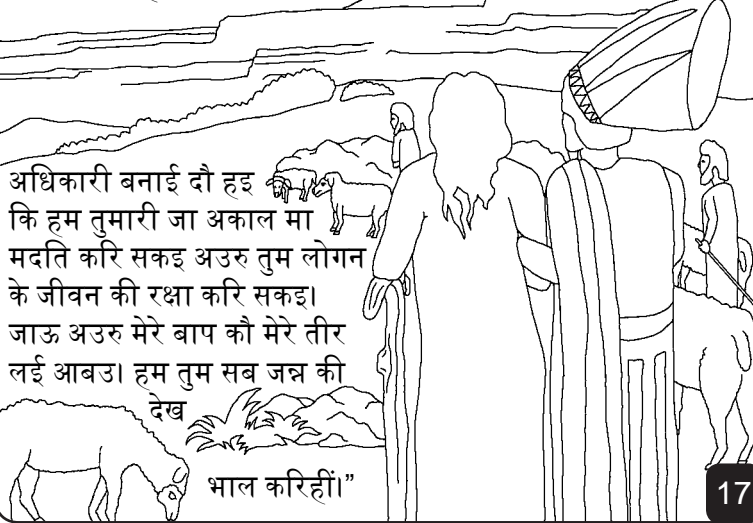 अधिकारी बनाई दौ हइ
कि हम तुमारी जा अकाल मा
मदति करि सकइ अउरु तुम लोगन
के जीवन की रक्षा करि सकइ।
जाऊ अउरु मेरे बाप कौ मेरे तीर
लई आबउ। हम तुम सब जन्न की
देख
भाल करिहीं।”
17